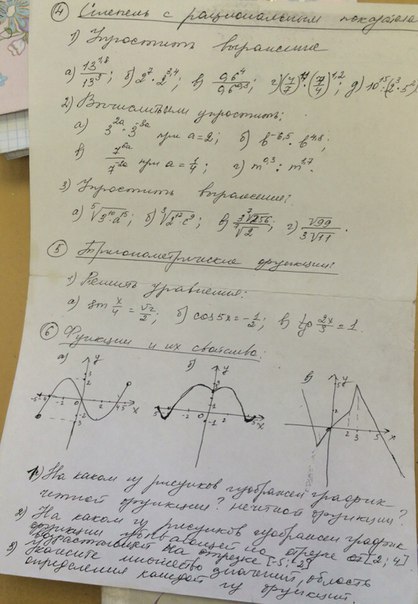 ④ Степень с рациональным показател
1) Упростить выражение
а) 13^1,8 / 13^5; б) 2^7 · 2^2,4; в) 96^4 /
2) Вычислить упростить:
а) 3^2a · 3^-8a при a=2; б) b^-8,5 · b^4,8;
в) 7^6a / 7^-2a при a=1/4; г) m^0,3 : m^1,7.
3) Упростить выражения:
а) ⁵√3^10 a^15; б) ³√2^12 c^9; в) г) √99 / 3√11.
⑤ Тригонометрические функции:
1) Решить уравнения:
а) sin x/4 = √2/2; б) cos 5x = -1/2; в) tg 2x/3 = 1.
⑥ Функции и их свойства:
а) б) в)
1) На каком из рисунков изображен график
четной функции? нечетной функции?
2) На каком из рисунков изображен график
функции на отрезке от [2; 4]
возрастающей на отрезке [-5; -2]
3) Укажите множество значений, область
определения каждой из функций.